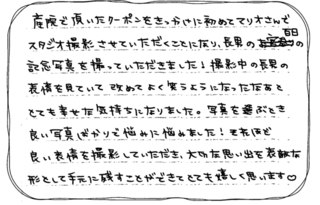 産院で頂いたクーポンをきっかけに初めてマリオさんで
スタジオ撮影させていただくことになり、長男の百日の
記念写真を撮っていただきました！撮影中の長男の
表情を見ていて改めてよく笑うようになったなあと
とても幸せな気持ちになりました。写真を選ぶとき
良い写真ばかりで悩みに悩みました！それほど
良い表情を撮影していただき、大切な思い出を素敵な
形として手元に残すことができてとても嬉しく思います♡